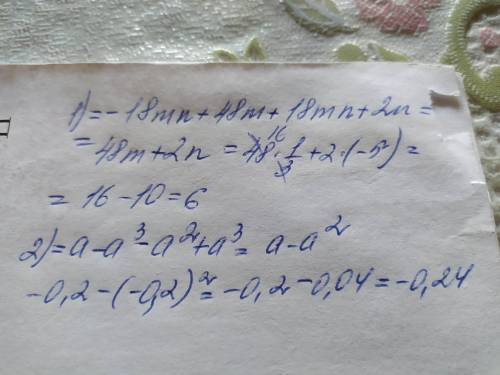 1) = -18mn + 48m + 18mn + 2n =
= 48m + 2n = 48^16 · 1/3 + 2·(-5) =
= 16 - 10 = 6
2) = a - a³ - a² + a³ = a - a²
-0,2 - (-0,2)² = -0,2 - 0,04 = -0,24